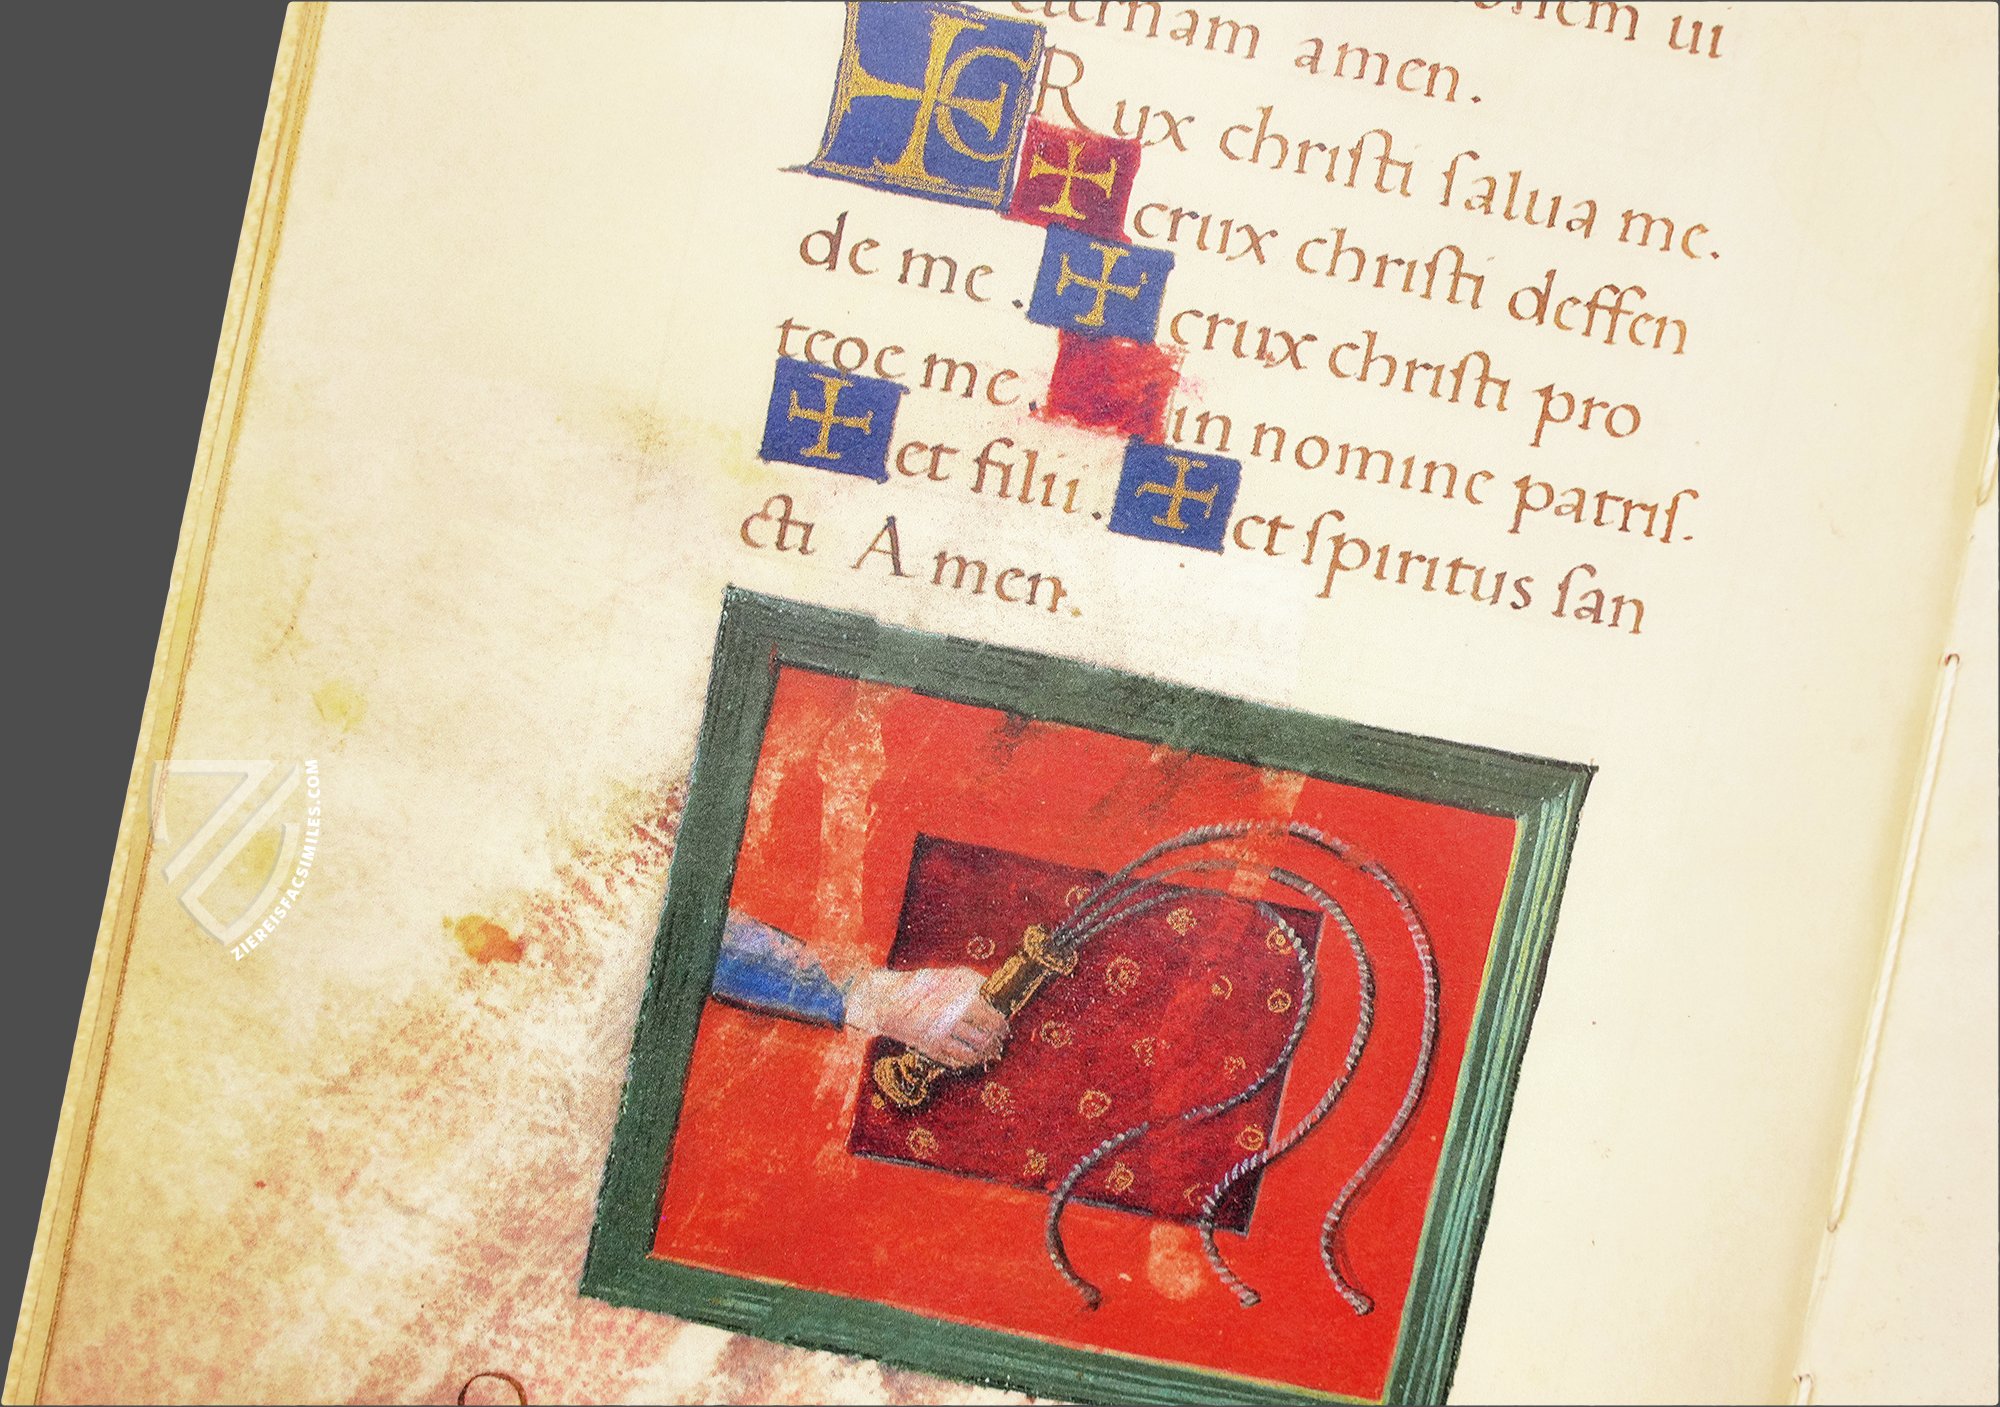 eternam amen.
✠ CRux christi ſalua me.
✠ crux christi deffen
de me. ✠ crux christi pro
tege me. in nomine patriſ.
✠ et filii. ✠ et ſpiritus ſan
cti Amen.
ZIEREISFACSIMILES.COM